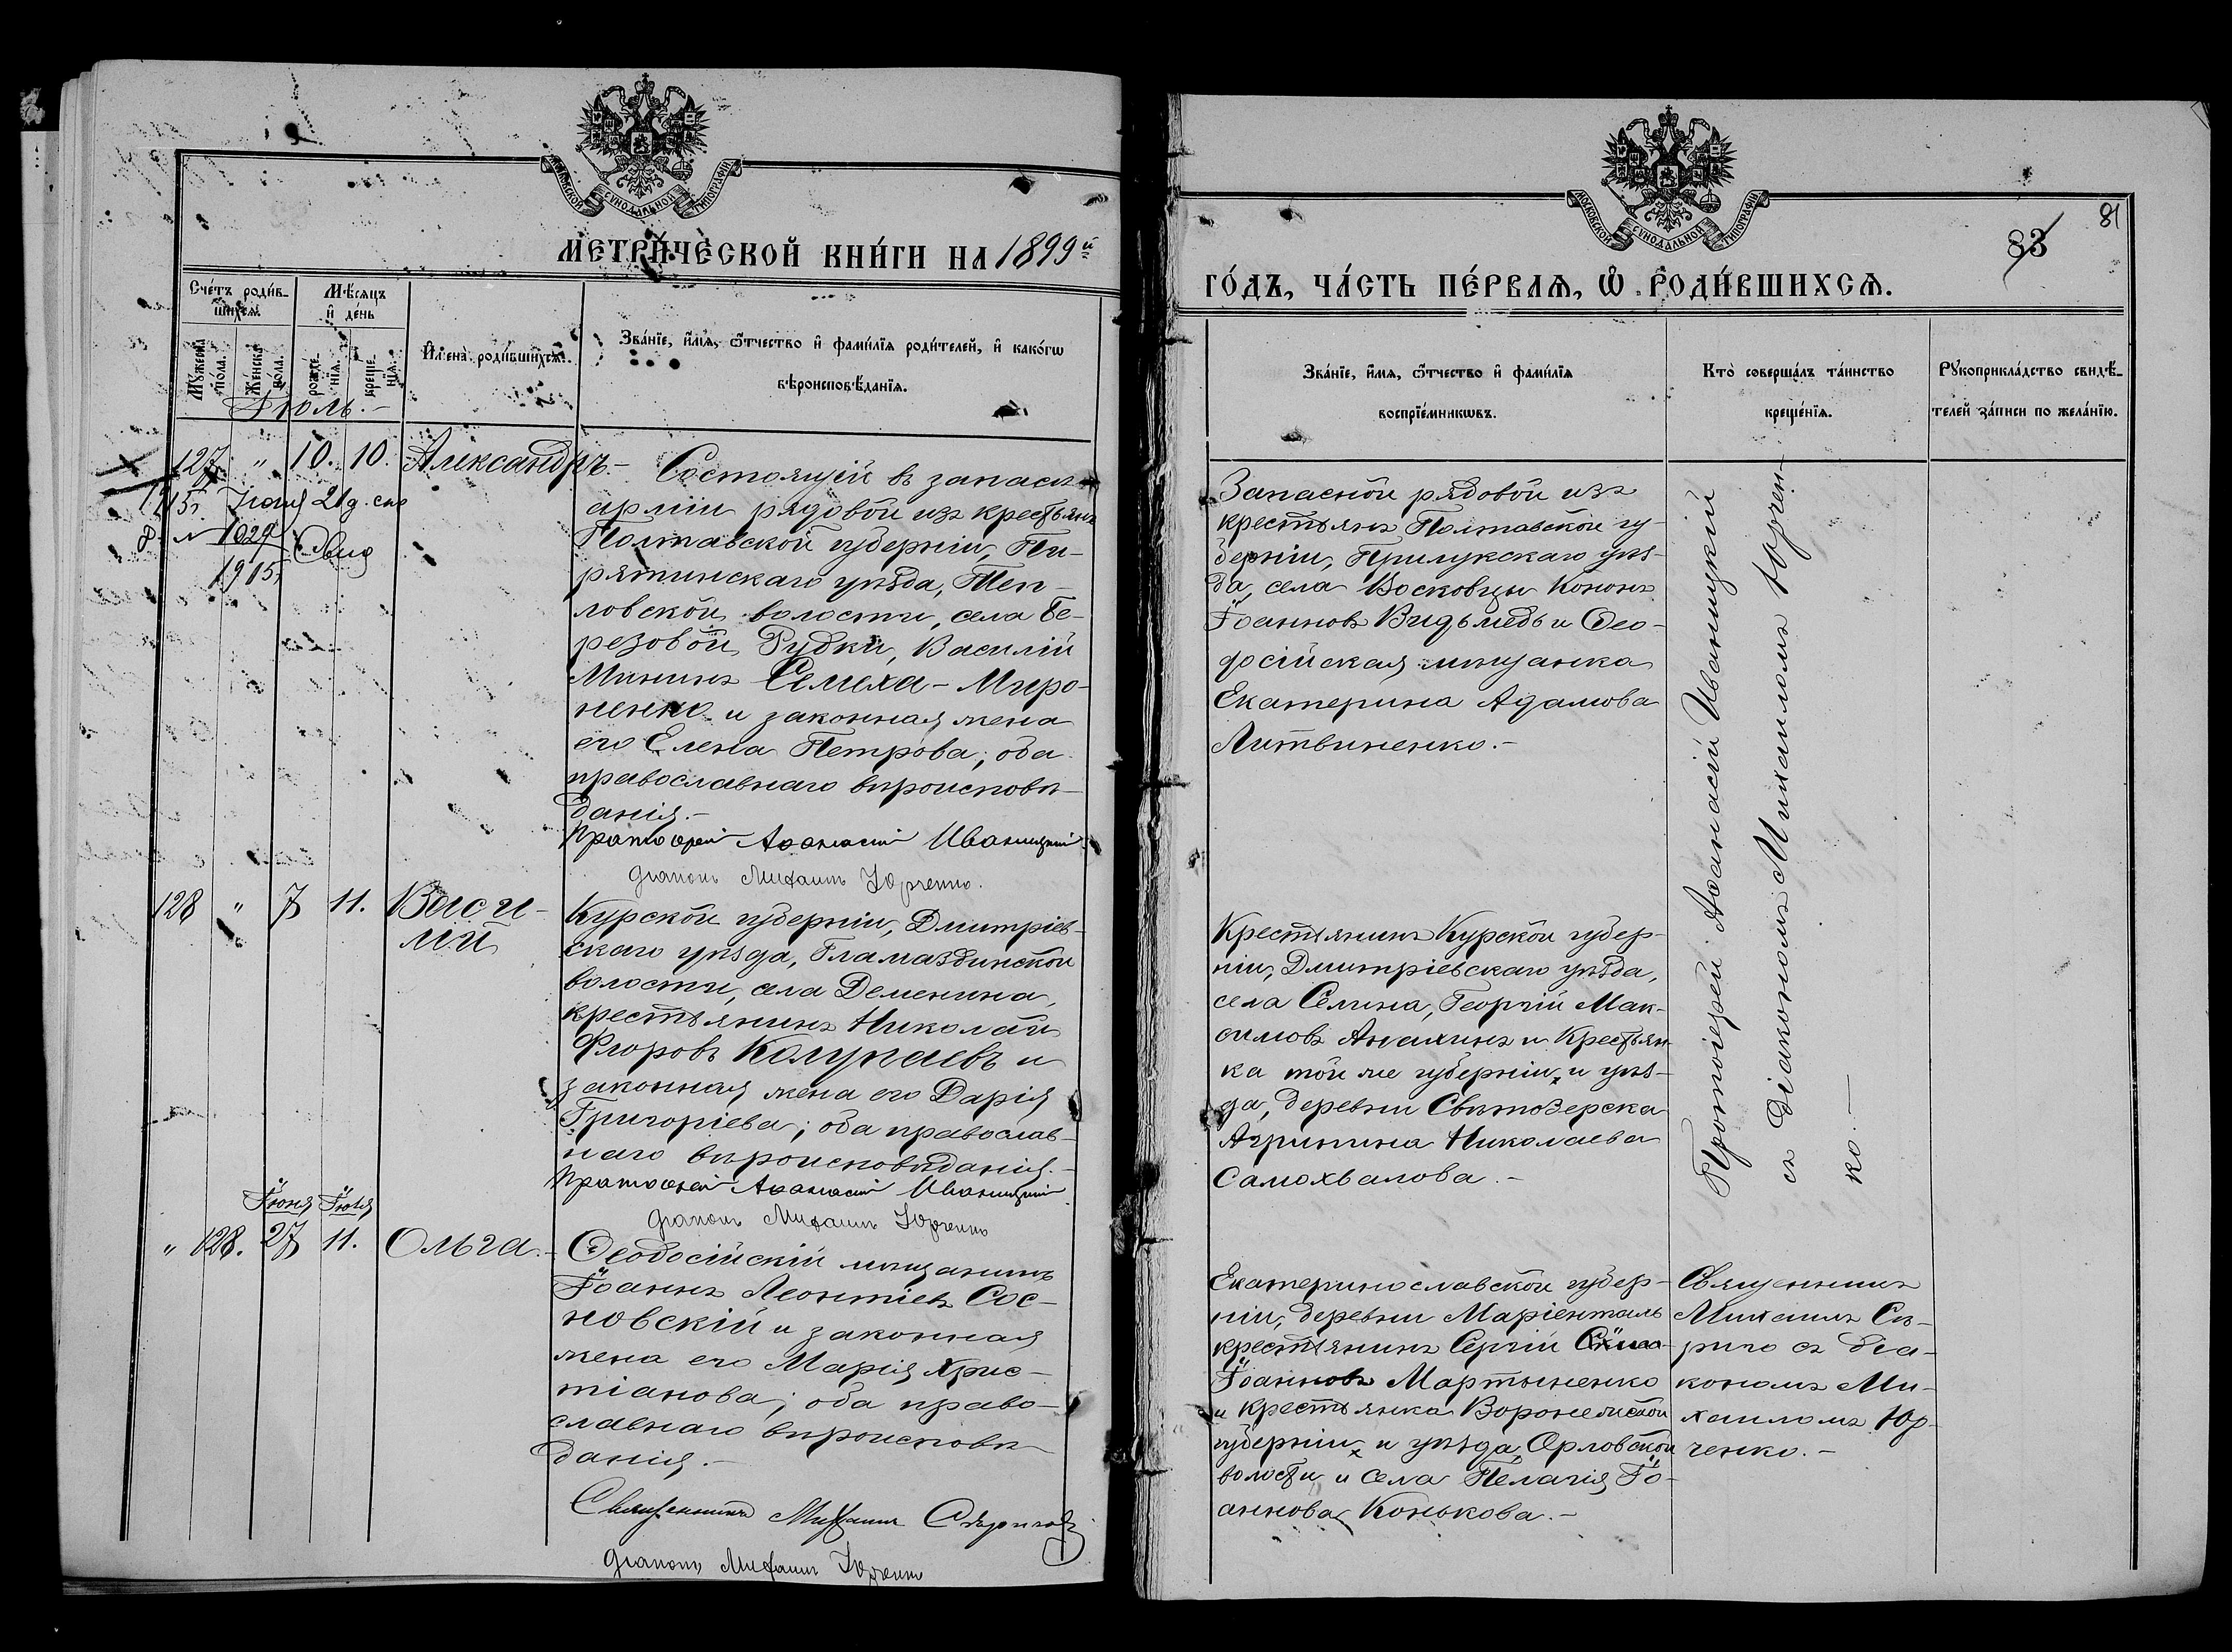 МОСКОВСКОЙ СѴНОДАЛЬНОЙ ТИПОГРАФІИ
МЕТРИ́ЧЕСКОЙ КНИ́ГИ НА 1899й
Сче́тъ роди́в-
шихсѧ.
Мѣ́сѧцъ
и҆ де́нь
И҆мена̀ роди́вшихсѧ.
Зва́нїе, и҆́мѧ, ѻ҆́тчество и҆ фами́лїѧ роди́телей, и҆ како́гѡ
вѣроисповѣ́данїѧ.
Мꙋ́жеска по́ла.
Же́нска по́ла.
рожде́-
нїѧ.
креще́-
нїѧ.
Іюль.-
127. " 10. 10. Александръ.-
1915г. Іюня 21 д.
№ 1029
1915
Свид
Состоящій въ запасѣ
арміи рядовой изъ крестьянъ
Полтавской губерніи, Пи-
рятинскаго уѣзда, Теп-
ловской волости, села Бе-
резовой Рудки, Василій
Мининъ Семеха-Миро-
ненко и законная жена
его Елена Петрова; оба
православнаго вѣроисповѣ-
данія.-
Протоіерей Аѳанасій Иваницкій
діаконъ Михаилъ Юрченко.
128 " 7 11. Васи-
лій
Курской губерніи, Дмитріев-
скаго уѣзда, Гламаздинской
волости, села Деменина,
крестьянинъ Николай
Флоровъ Колупаевъ и
законная жена его Дарія
Григоріева; оба православ-
наго вѣроисповѣданія.-
Протоіерей Аѳанасій Иваницкій
діаконъ Михаилъ Юрченко
Іюня Іюля
" 128. 27 11. Ольга.-
Ѳеодосійскій мѣщанинъ
Іоаннъ Леонтіевъ Сос-
новскій и законная
жена его Марія Хрис-
тіанова; оба право-
славнаго вѣроисповѣ-
данія.-
Священникъ Михаилъ
діаконъ Михаилъ Юрченко
МОСКОВСКОЙ СѴНОДАЛЬНОЙ ТИПОГРАФІИ
81
83
ГО́ДЪ, ЧА́СТЬ ПЕ́РВАѦ, Ѡ҆ РОДИ́ВШИХСѦ.
Зва́нїе, и҆́мѧ, ѻ҆́тчество и҆ фами́лїѧ
воспрїе́мникѡвъ.
Кто̀ соверша́лъ та́инство
креще́нїѧ.
Рꙋкоприкла́дство свидѣ́-
телей за́писи по жела́нїю.
Запасной рядовой изъ
крестьянъ Полтавской гу-
берніи, Прилукскаго уѣз-
да, села Восковцы Кононъ
Іоанновъ Видьмедь и Ѳео-
досійская мѣщанка
Екатерина Адамова
Литвиненко.-
Протоіерей Аѳанасій Иваницкій
съ діакономъ Михаиломъ Юрчен-
ко.-
Крестьянинъ Курской губер-
ніи, Дмитріевскаго уѣзда,
села Селина, Георгій Мак-
симовъ Анахинъ и Крестьян-
ка той же губерніи и уѣз-
да, деревни Свѣтозерска
Агрипина Николаева
Самохвалова.-
Екатеринославской губер-
ніи, деревни Маріенталь
крестьянинъ Сергій
Іоанновъ Мартыненко
и крестьянка Воронежской
губерніи и уѣзда Орловской
волости и села Пелагія Іо-
аннова Конькова.-
Священникъ
Михаилъ Сѣ-
риго съ діа-
кономъ Ми-
хаиломъ Юр-
ченко.-